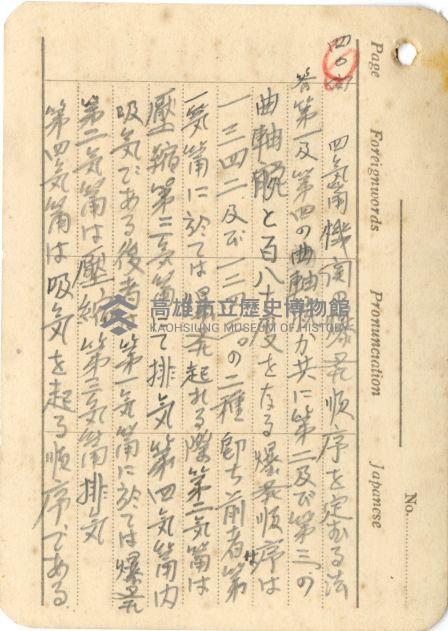 Page Foreignwords Pronunciation Japanese
No.
四〇
四気筩機関爆発順序を定むる法
答第一及第四の曲軸腕が共に第二及び第三の
曲軸腕と百八十度をなる爆発順序は
一三四二及び一二四三。の二種即ち前者第
一気筩に於ては爆発起れる際第二気筩は
壓縮第三気筩て排気第四気筩内
吸気である後者は第一気筩に於ては爆発
第二気筩は壓縮第三気筩排気
第四気筩は吸気を起る順序である
高雄市立歷史博物館
KAOHSIUNG MUSEUM OF HISTORY